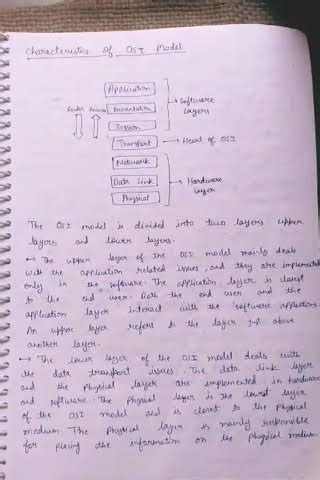 Characteristics of OSI Model
Application
Presentation
Session
Software
Layers
Sender Receiver
Transport
Heart of OSI
Network
Data Link
Physical
Hardware
Layer
The OSI model is divided into two layers upper
layers and lower layers.
→ The upper layer of the OSI model mainly deals
with the application related issues, and they are implemented
only in the software. The application layer is closest
to the end user. Both the end user and the
application layer interact with the software applications.
An upper layer refers to the layer just above
another layer.
→ The lower layer of the OSI model deals with
the data transport issues. The data link layer
and the physical layer are implemented in hardware
and software. The physical layer is the lowest layer
of the OSI model and is closest to the physical
medium. The physical layer is mainly responsible
for placing the information on the physical medium.